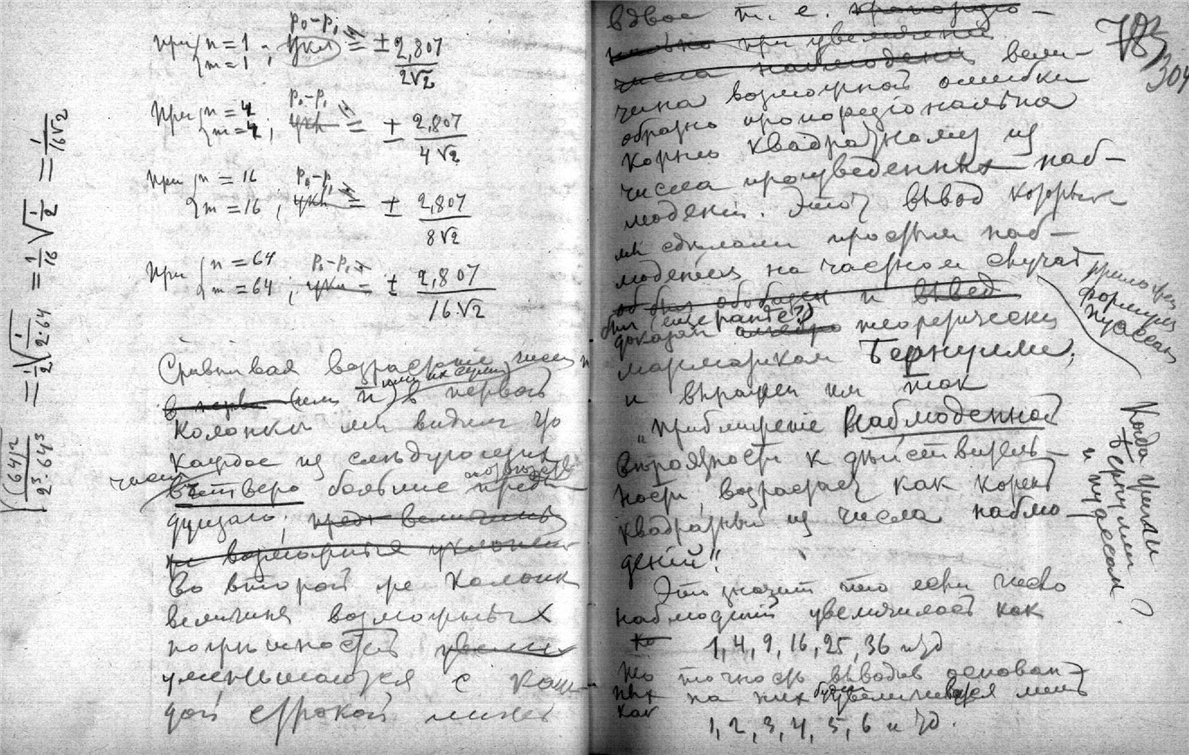 при { n = 1 m = 1 ; p₀ – p₁ = ± 2,807 / 2√2
при { n = 4 m = 4 ; p₀ – p₁ = ± 2,807 / 4√2
при { n = 16 m = 16 ; p₀ – p₁ = ± 2,807 / 8√2
при { n = 64 m = 64 ; p₀ – p₁ = ± 2,807 / 16√2
√(64)² / 2³·64³ = ½ √1 / 2·64 = 1/16 √½ = 1 / 16√2
Сравнивая возрастание чисел n
(или их сумм) в первой
колонке мы видим что
каждое из следующих
чисел вчетверо больше
дущаго,
Во второй же колонке
величина возможных
погрешностей
уменьшается с каж-
дой строкой лишь
783
304
вдвое т. е.
при увеличении
числа наблюдений вели-
чина возможной ошибки
обратно пропорциональна
корню квадратному из
числа произведенных наб-
людений. Этот вывод который
мы сделали простым наб-
людением на частном случае
и
был (еще ранее?)
доказан теоретически
математиком Бернулли,
и выражен им так
„Приближение наблюденной
вероятности к действитель-
ности, возрастает как корень
квадратный из числа наблю-
дений“.
Это значит что если число
наблюдений увеличилось как
1, 4, 9, 16, 25, 36 и т д
то точность выводов основан-
ных на них будет увеличиваться лишь
как
1, 2, 3, 4, 5, 6 и т д.
формулы
Пуассон
Когда жили
Бернулли
и Пуассон?